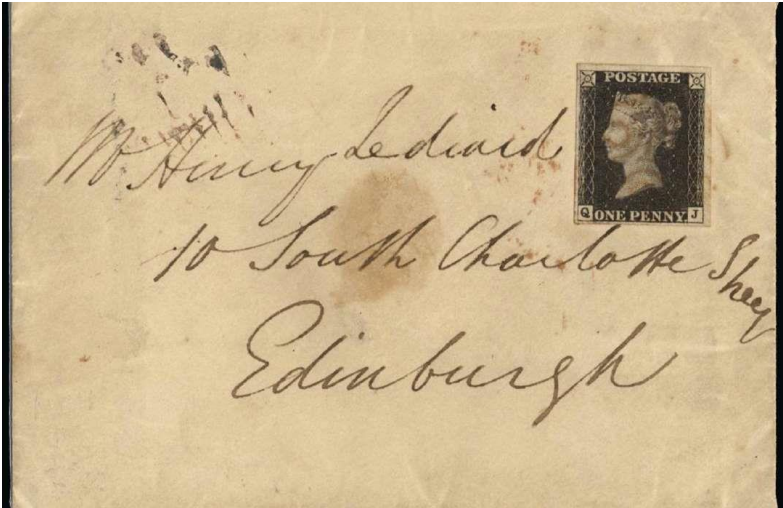 POSTAGE
Q ONE PENNY J
Mr Henry Lediard
10 South Charlotte Street
Edinburgh